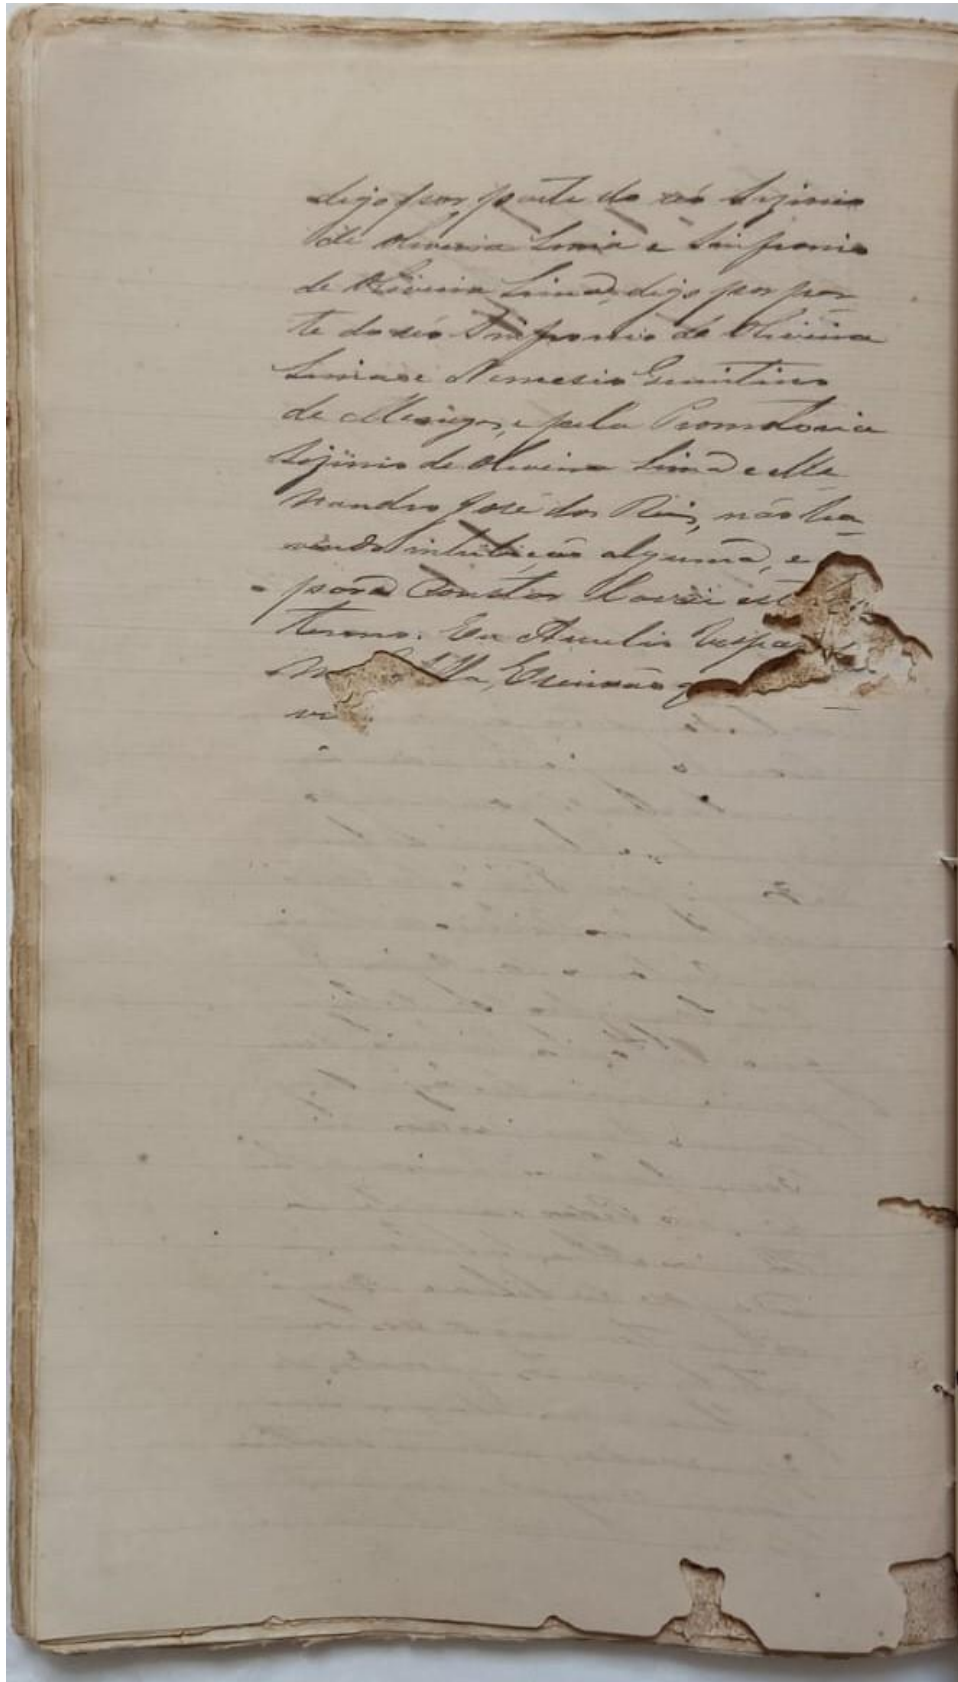 digo, por parte do réo Sizinio
de Oliveira Lima e Sinfronio
de Oliveira Lima, digo por par
te do réo Sinfronio de Oliveira
Lima e Nemesio Quintino
de, e pela Promotoria
Sizinio de Oliveira Lima e Ma
nandro José dos Reis, não ha
vendo alguma, e
para constar lavrei este
termo. Eu Aurelio Vespa
Escrivão